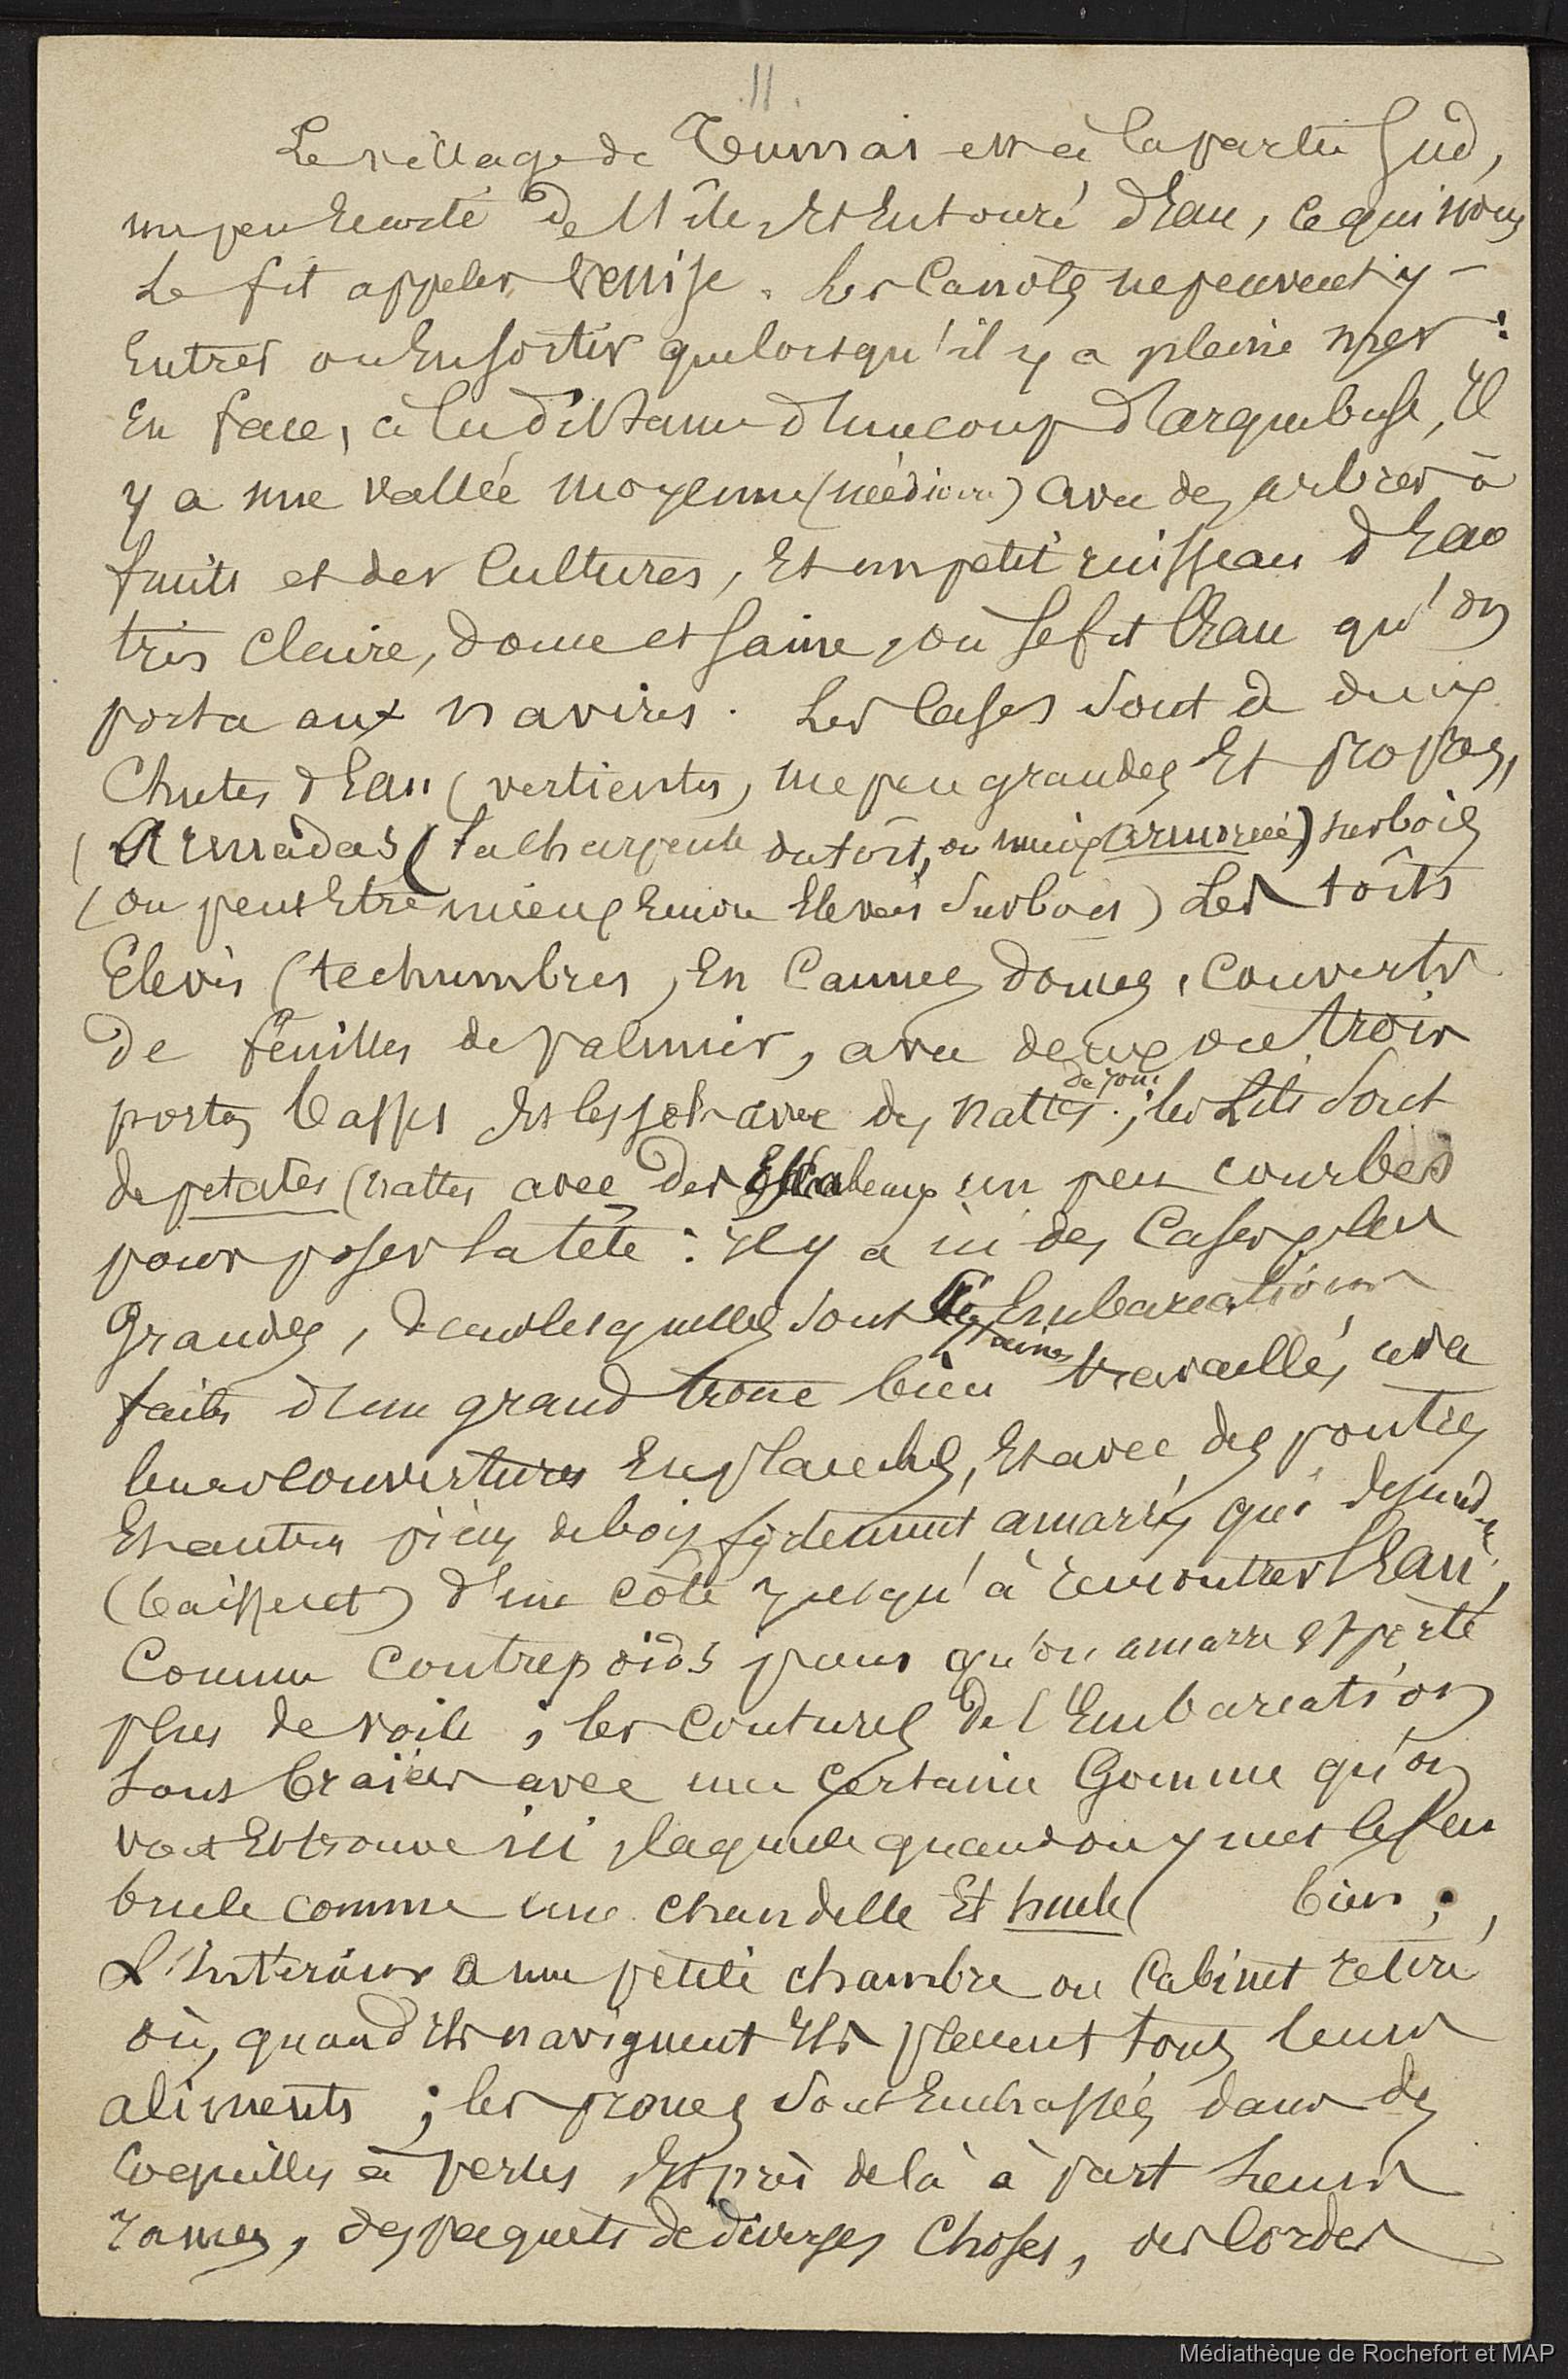 11.
Le village de Tumai est à la partie Sud,
un peu écarté de l'île, et Entouré d'Eau, ce qui nous
le fit appeler Venise. Les Canots ne peuvent y
Entrer ou En sortir que lorsqu'il y a pleine mer :
En face, à la distance d'un coup d'arquebuse, il
y a une vallée moyenne (médiocre) avec des arbres à
fruits et des Cultures, Et un petit ruisseau d'Eau
très Claire, douce et Saine, où se fit l'Eau qu'on
porta aux navires. Les Cases sont à deux
Chutes d'Eau (vertientes, un peu grandes Et
(Armadas (la charpente du toit, ou mieux armoreé) sur bois
(ou peut Etre mieux Encore Elevées sur bois) Les toits
Elevés (techumbres, En Cannes douces, Couverts
de feuilles de palmier, avec deux ou trois
portes basses Et les sols avec des nattes de jonc ; les Lits sont
de petates (nattes avec des Escabeaux un peu courbes
pour poser la tête : il y a ici des Cases plus
Grandes, dans lesquelles sont les Embarcations
faites d'un grand tronc bien travaillé, avec
leurs Couvertures En planches, Et avec des poutres
Et autres pièces de bois fortement amarrés, qui
(baissent) d'un côté jusqu'à rencontrer l'Eau,
Comme Contrepoids pour qu'on amarre et porte
plus de voile ; les Coutures de l'Embarcation
sont braiées avec une certaine Gomme qu'on
voit Et trouve ici, laquelle quand on y met le feu
brule comme une chandelle Et huele ( bien ;
L'Interieur a une petite chambre ou Cabinet retiré
où, quand ils naviguent ils placent tous leurs
aliments ; les proues sont Enchassées dans des
Coquilles à perles Et près de là à part leurs
rames, des paquets de diverses Choses, des Cordes
Médiathèque de Rochefort et MAP